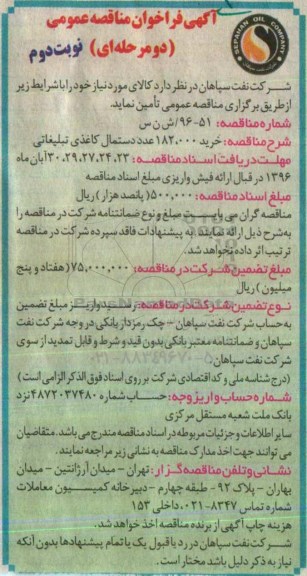 SEPAHAN OIL COMPANY
آگهی فراخوان مناقصه عمومی
(دو مرحله‌ای) نوبت دوم
شرکت نفت سپاهان در نظر دارد کالای مورد نیاز خود را با شرایط زیر
از طریق برگزاری مناقصه عمومی تأمین نماید.
شماره مناقصه: ۵۱-۹۶/ش ن س
شرح مناقصه: خرید ۱۸۲,۰۰۰ عدد دستمال کاغذی تبلیغاتی
مهلت دریافت اسناد مناقصه: ۲۳،۲۴،۲۷،۲۹،۳۰ آبان ماه
۱۳۹۶ در قبال ارائه فیش واریزی مبلغ اسناد مناقصه
مبلغ اسناد مناقصه: ۵۰۰,۰۰۰ (پانصد هزار) ریال
مناقصه گران می بایست مبلغ و نوع ضمانتنامه شرکت در مناقصه را
به شرح ذیل ارائه نمایند. به پیشنهادات فاقد سپرده شرکت در مناقصه
ترتیب اثر داده نخواهد شد.
مبلغ تضمین شرکت در مناقصه: ۷۵,۰۰۰,۰۰۰ (هفتاد و پنج
میلیون) ریال
نوع تضمین شرکت در مناقصه: رسید واریز مبلغ تضمین
به حساب شرکت نفت سپاهان - چک رمزدار بانکی در وجه شرکت نفت
سپاهان و ضمانتنامه معتبر بانکی بدون قید و شرط و قابل تمدید از سوی
شرکت نفت سپاهان.
(درج شناسه ملی و کد اقتصادی شرکت بر روی اسناد فوق الذکر الزامی است)
شماره حساب واریز وجه: حساب شماره ۴۸۷۲۰۳۷۴۸۰ نزد
بانک ملت شعبه مستقل مرکزی
سایر اطلاعات و جزئیات مربوطه در اسناد مناقصه مندرج می باشد. متقاضیان
می توانند جهت اخذ مدارک مناقصه به نشانی زیر مراجعه نمایند.
نشانی و تلفن مناقصه گزار: تهران - میدان آرژانتین - میدان
بهاران - پلاک ۹۲ - طبقه چهارم - دبیرخانه کمیسیون معاملات
شماره تماس ۸۳۴۷-۰۲۱، داخلی ۱۵۳
هزینه چاپ آگهی از برنده مناقصه اخذ خواهد شد.
شرکت نفت سپاهان در رد یا قبول یک یا تمام پیشنهادها بدون آنکه
نیاز به ذکر دلیل باشد مختار است.